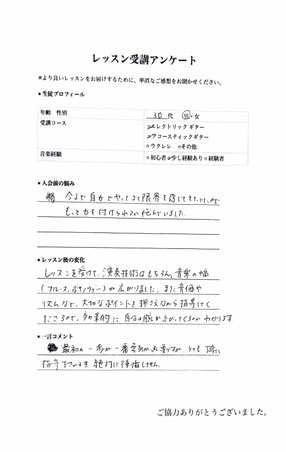 レッスン受講アンケート
※より良いレッスンをお届けするために、率直なご感想をお聞かせください。
● 生徒プロフィール
年齢 性別 30代 男・女
受講コース エレクトリックギター
アコースティックギター
○ウクレレ ○その他
音楽経験 ○初心者 少し経験あり ○経験者
● 入会前の悩み
今まで自力でやってきて限界を感じて
もっと力を付けられるか悩んでいました。
● レッスン後の変化
レッスンを受けて、演奏技術はもちろん、音楽の幅
(ブルース、ボサノヴァ)が広がりました。また音価や
リズムなど、大切なポイントを押さえながら指導して
くださるので、効果的に自分の腕が上がってくるのがわかります。
● 一言コメント
最初の一歩が一番勇気が必要ですが、とても丁寧に
指導下さいます。絶対に後悔しません。
ご協力ありがとうございました。